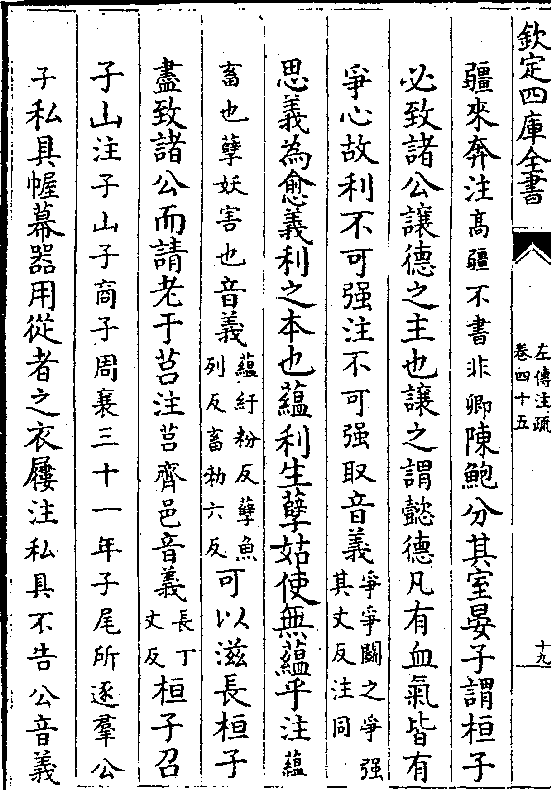 欽定四庫全書
左傳注疏
卷四十五
十九
疆來奔注高疆不書非卿陳鮑分其室晏子謂桓子
必致諸公讓德之主也讓之謂懿德凡有血氣皆有
爭心故利不可强注不可强取音義爭爭鬬之爭强其丈反注同
思義為愈義利之本也蘊利生孽姑使無蘊乎注蘊
畜也孽妖害也音義蘊紆粉反孽魚列反畜勑六反可以滋長桓子
盡致諸公而請老于莒注莒齊邑音義長丁丈反桓子召
子山注子山子商子周襄三十一年子尾所逐羣公
子私具幄幕器用從者之衣屨注私具不告公音義